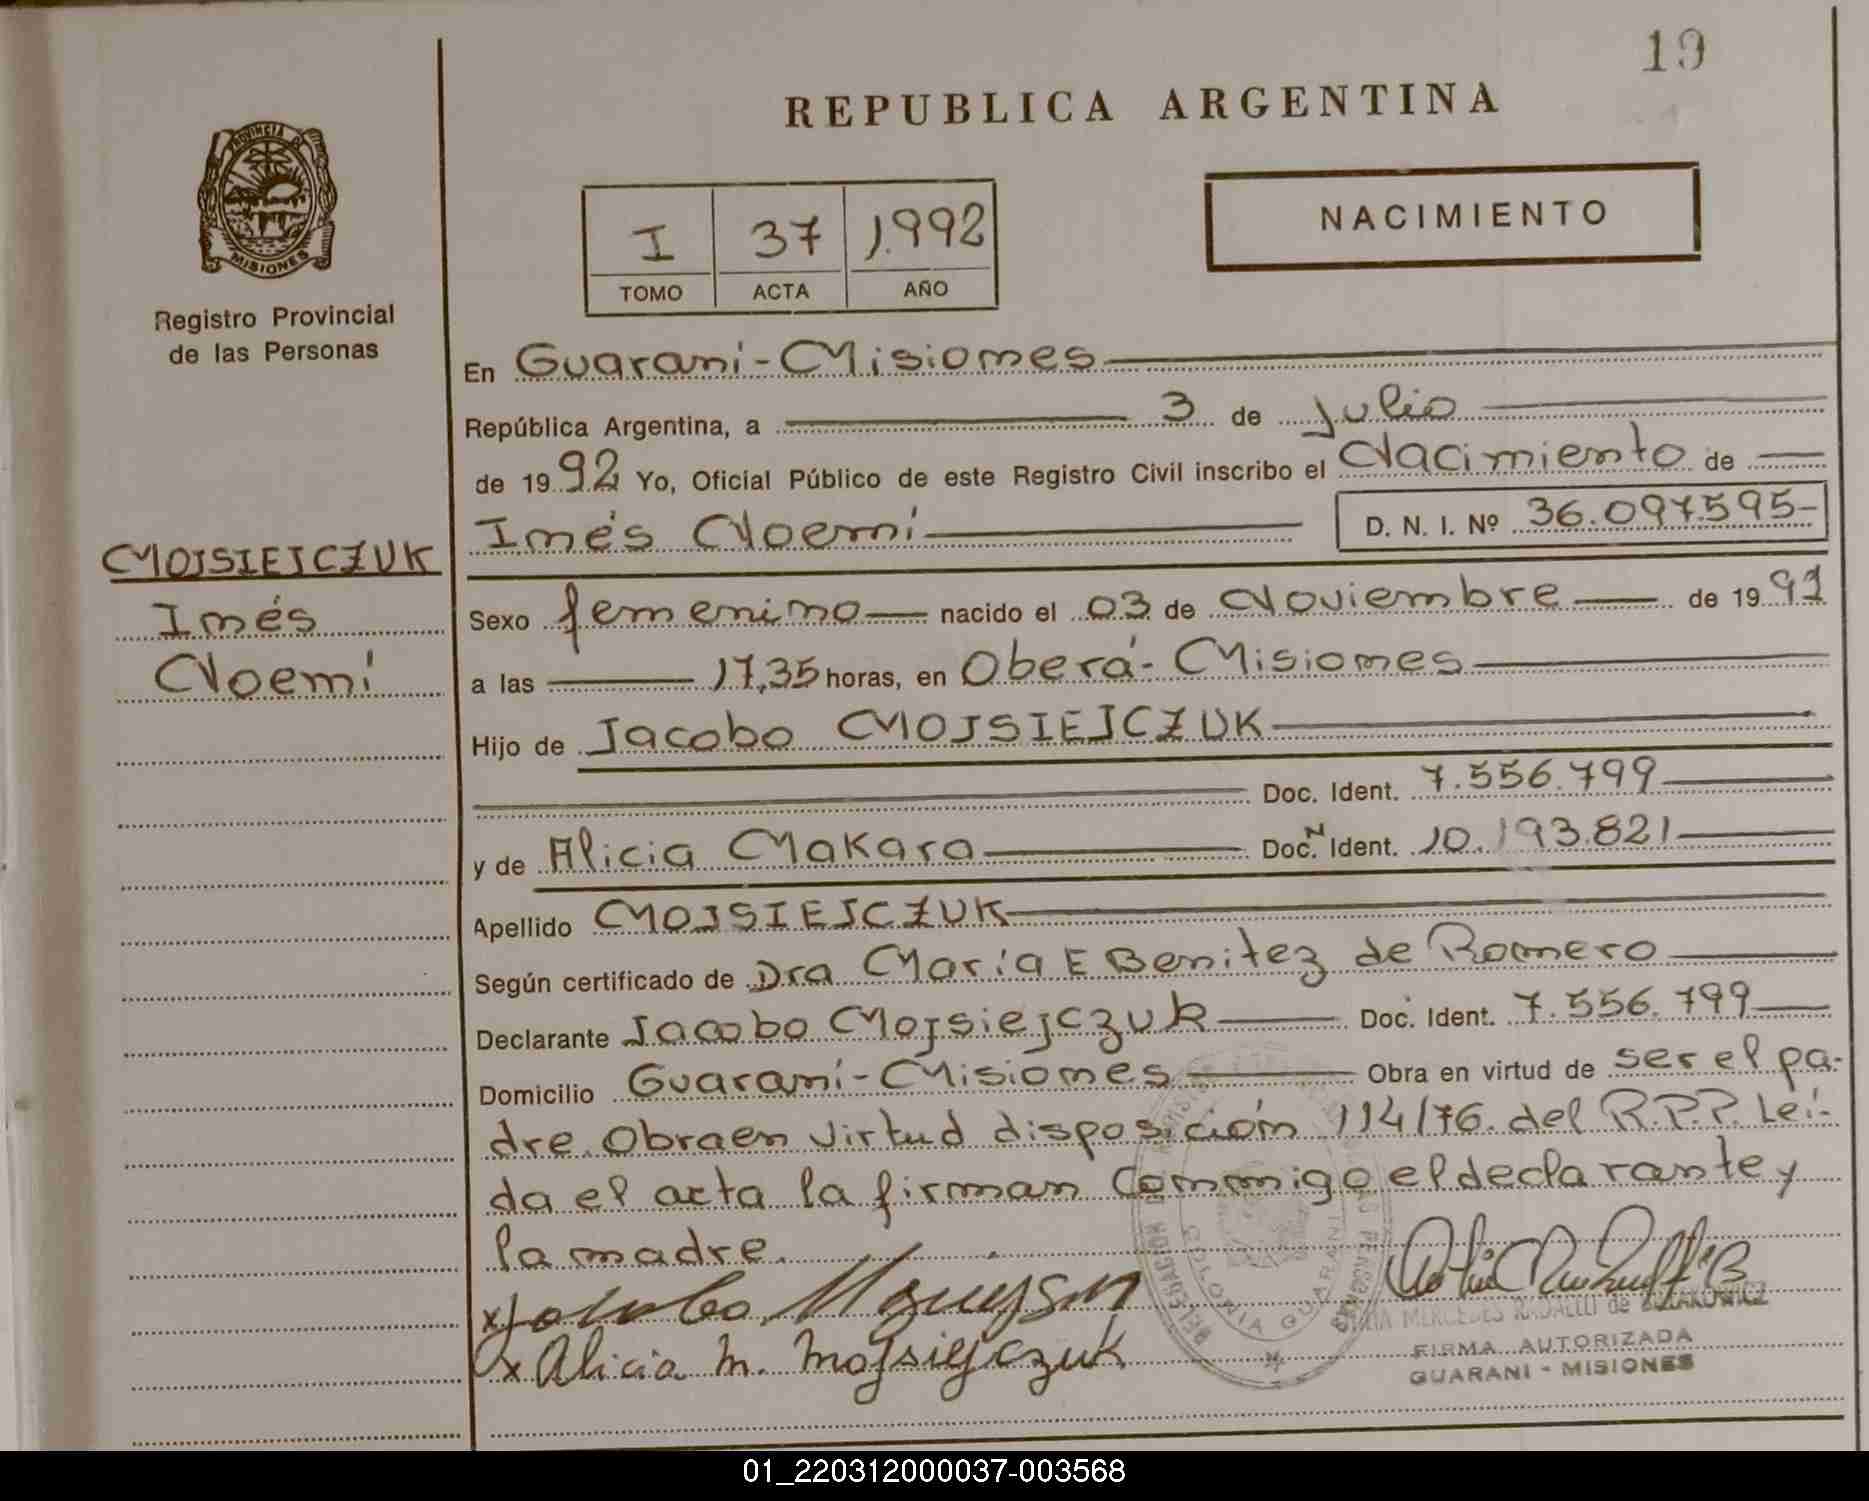 19
REPUBLICA ARGENTINA
PROVINCIA DE
MISIONES
Registro Provincial
de las Personas
I 37 1.992
TOMO ACTA AÑO
NACIMIENTO
En Guaraní-Misiones
República Argentina, a 3 de Julio
de 1992 Yo, Oficial Público de este Registro Civil inscribo el Nacimiento de
Inés Noemí D. N. I. Nº 36.097.595-
MOJSIEJCZUK
Inés
Noemí
Sexo femenino nacido el 03 de Noviembre de 1991
a las 17,35 horas, en Oberá-Misiones
Hijo de Jacobo MOJSIEJCZUK
Doc. Ident. 7.556.799
y de Alicia Makara Doc. N Ident. 10.193.821
Apellido MOJSIEJCZUK
Según certificado de Dra María E Benitez de Romero
Declarante Jacobo Mojsiejczuk Doc. Ident. 7.556.799
Domicilio Guaraní-Misiones Obra en virtud de ser el pa-
dre. Obra en virtud disposición 114/76. del R.P.P. Leí-
da el acta la firman conmigo el declarante y
la madre.
x
x Alicia M. Mojsiejczuk
COLONIA GUARANI
MERCEDES de
FIRMA AUTORIZADA
GUARANI - MISIONES
01_220312000037-003568